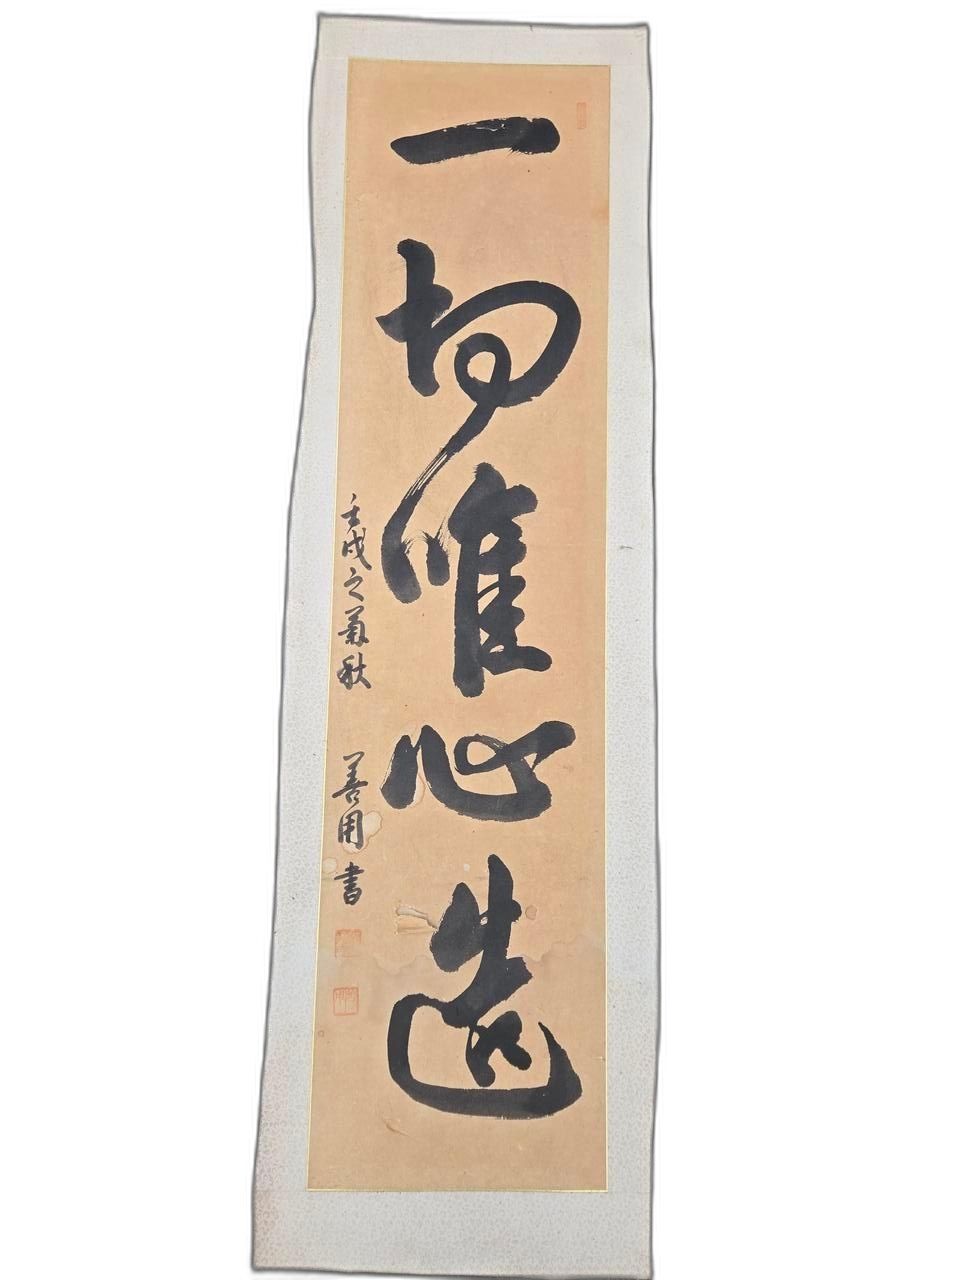 一切唯心造
壬戌之菊秋 善用書